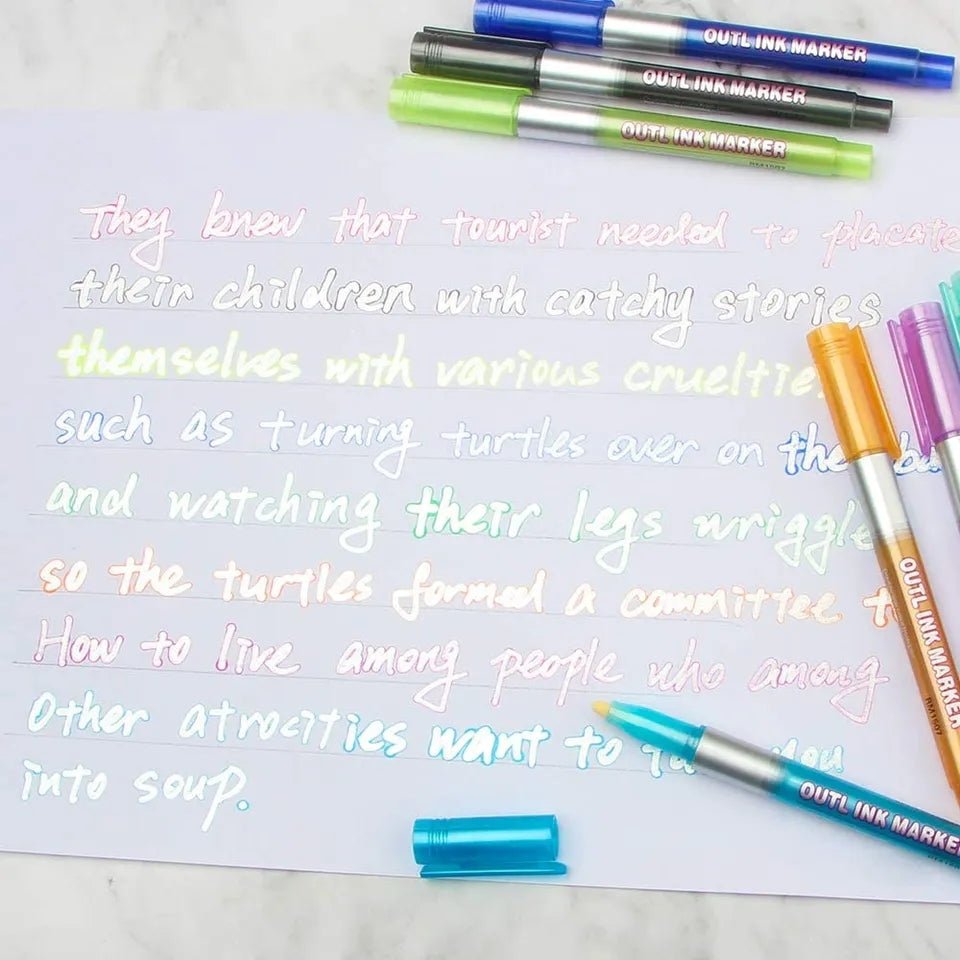 OUTL INK MARKER
OUTL INK MARKER
OUTL INK MARKER
RM1507
They knew that tourist needed to placate
their children with catchy stories
themselves with various cruelties
such as turning turtles over on the
and watching their legs wriggle
so the turtles formed a committee
How to live among people who among
Other atrocities want to you
into soup.
OUTL INK MARKER
RM1507
OUTL INK MARKER